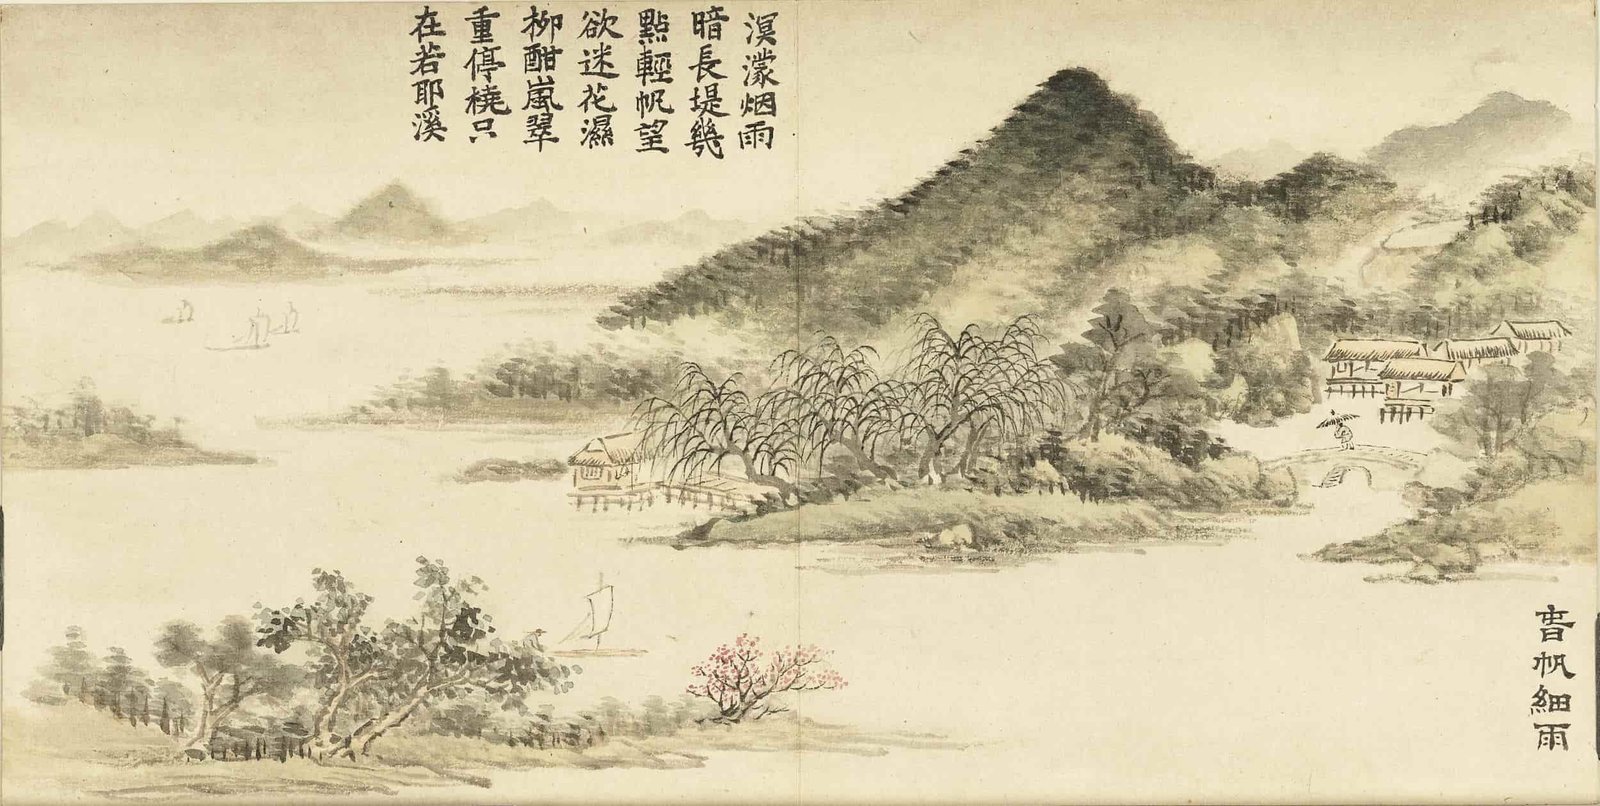 旾帆細雨
溟濛烟雨
暗長堤幾
點輕帆望
欲迷花濕
柳酣嵐翠
重停橈只
在若耶溪